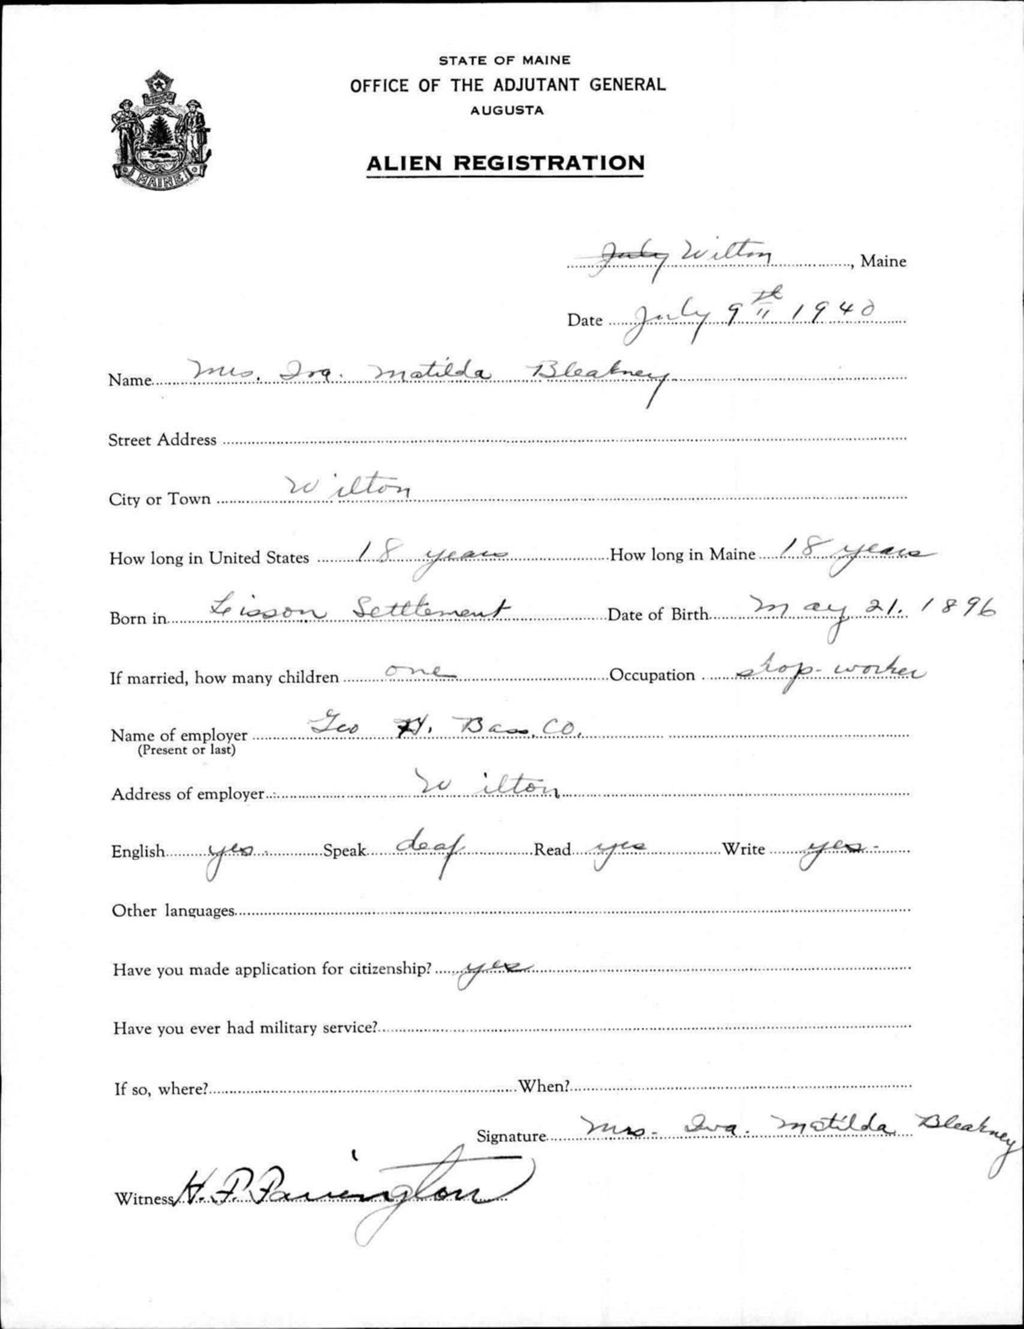 STATE OF MAINE
OFFICE OF THE ADJUTANT GENERAL
AUGUSTA
MAINE
ALIEN REGISTRATION
July Wilton, Maine
Date July 9th 1940
Name Mrs. Iva. Matilda Bleakney
Street Address
City or Town Wilton
How long in United States 18 years How long in Maine 18 years
Born in Leisson Settlement Date of Birth May 21. 1896
If married, how many children one Occupation shop-worker
Name of employer Geo H. Bass. Co.
(Present or last)
Address of employer Wilton
English yes. Speak deaf Read yes Write yes-
Other languages
Have you made application for citizenship? yes
Have you ever had military service?
If so, where? When?
Signature Mrs. Iva. Matilda Bleakney
Witness H. P.